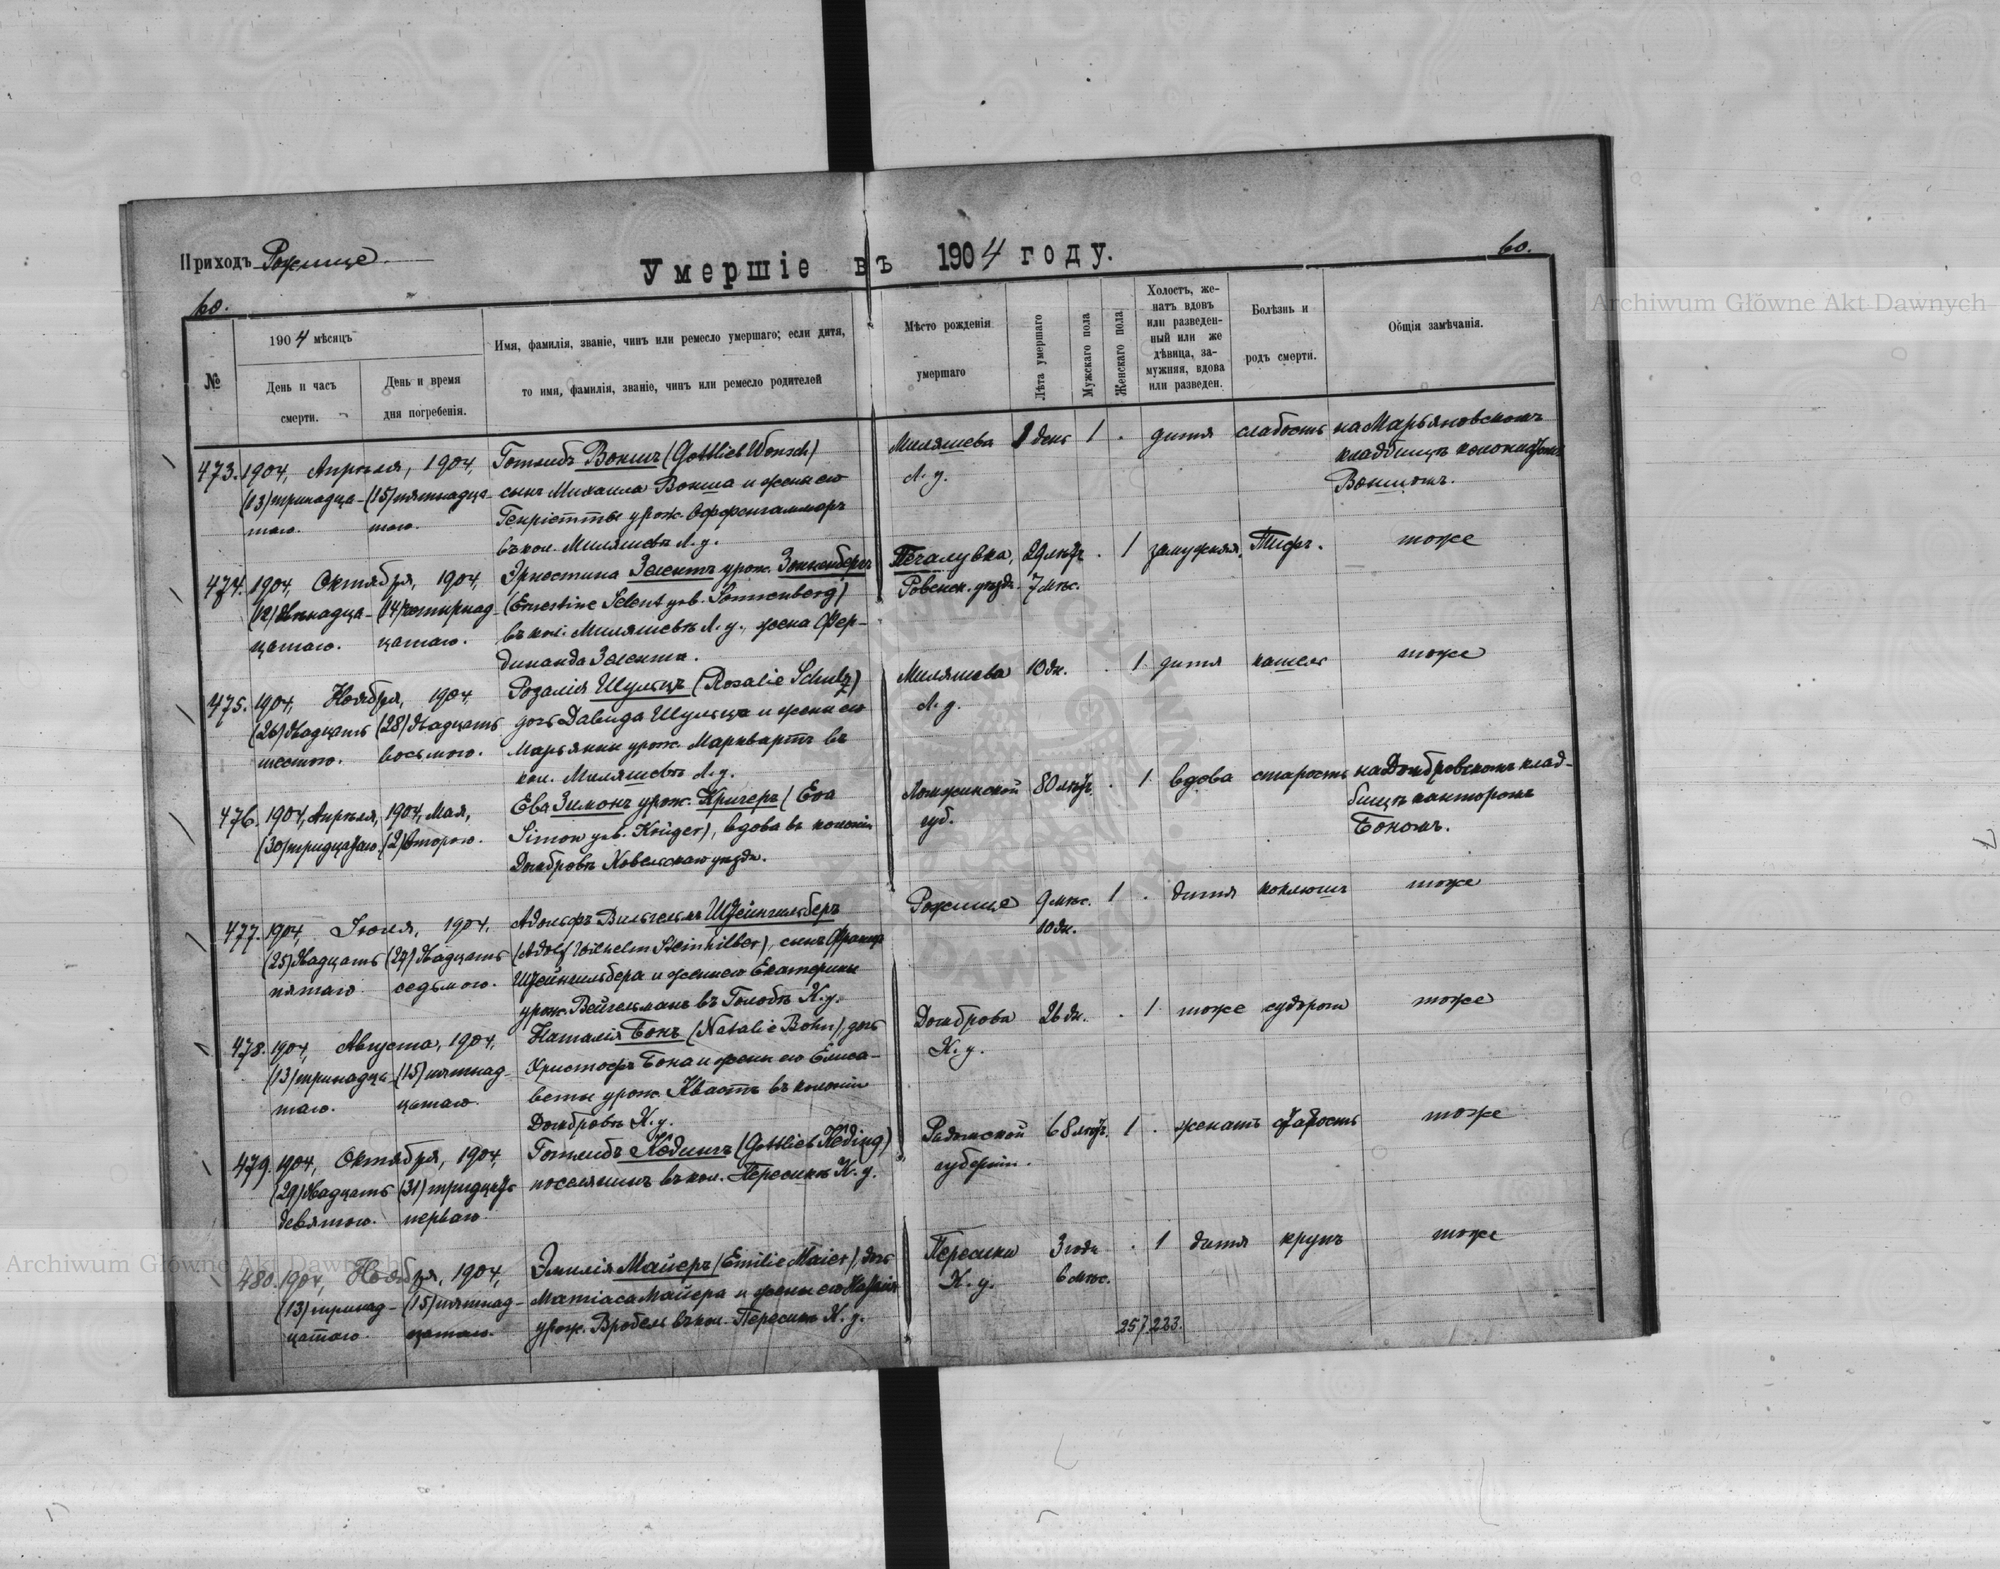 Приходъ Рожище.
Умершіе въ 1904 году.
60.
60.
№
1904 мѣсяцъ
День и часъ смерти.
День и время дня погребенія.
Имя, фамилія, званіе, чинъ или ремесло умершаго; если дитя,
то имя, фамилія, званіе, чинъ или ремесло родителей
Мѣсто рожденія
умершаго
Лѣта умершаго
Мужскаго пола
Женскаго пола
Холостъ, же-
натъ вдовъ
или разведен-
ный или же
дѣвица, за-
мужняя, вдова
или разведен.
Болѣзнь и
родъ смерти.
Общія замѣчанія.
473. 1904, Апрѣля, 1904, Готлибъ Воншъ (Gottlieb Wonsch) Миляшева 1 день 1 . дитя слабость на Марьяновскомъ
(13) тринадца- (15) пятнадца- сынъ Михаила Вонша и жены его Л. у. кладбищѣ колонистомъ
таго. таго. Генріетты урож. Оффенгаммеръ Воншомъ.
въ кол. Миляшевѣ Л. у.
474. 1904, Октября, 1904, Эрнестина Зелентъ урож. Зонненбергъ Печалувка, 29 лѣтъ . 1 замужняя. Тифъ. тоже
(12) двѣнадца- (14) четырнад- (Ernestine Selent geb. Sonnenberg) Ровенск. уѣзда. 7 мѣс.
цатаго. цатаго. въ кол. Миляшевѣ Л. у., жена Фер-
динанда Зелента.
475. 1904, Ноября, 1904, Розалія Шульцъ (Rosalie Schulz) Миляшева 10 дн. . 1 дитя кашель тоже
(26) двадцать (28) двадцать дочь Давида Шульца и жены его Л. у.
шестого. восьмого. Марьянны урож. Марквартъ въ
кол. Миляшевѣ Л. у.
476. 1904, Апрѣля, 1904, Мая, Ева Зимонъ урож. Кригеръ (Eva Ломжинской 80 лѣтъ . 1 вдова старость на Домбровскомъ клад-
(30) тридцатаго. (2) второго. Simon geb. Krüger), вдова въ колоніи губ. бищѣ канторомъ
Домбровѣ Ковельскаго уѣзда. Бономъ.
477. 1904, Іюля, 1904, Адольфъ Вильгельмъ Штейнгильберъ Рожище 9 мѣс. 1 . дитя коклюшъ тоже
(25) двадцать (27) двадцать (Adolf Wilhelm Steinhilber), сынъ Франца 10 дн.
пятаго седьмого. Штейнгильбера и жены его Екатерины
урож. Вейгельманъ въ Голобѣ К. у.
478. 1904, Августа, 1904, Наталія Бонъ (Natalie Bohn), дочь Домброва 26 дн. . 1 тоже судороги тоже
(13) тринадца- (15) пятнад- Христофа Бона и жены его Елиса- К. у.
таго. цатаго. веты урож. Квастъ въ колоніи
Домбровѣ К. у.
479. 1904, Октября, 1904, Готлибъ Кёдингъ (Gottlieb Köding) Радомской 68 лѣтъ 1 . женатъ старость тоже
(29) двадцать (31) тридцать поселянинъ въ кол. Пересикѣ К. у. губерніи.
девятого. перваго.
480. 1904, Ноября, 1904, Эмилія Майеръ (Emilie Maier), дочь Пересика 3 года . 1 дитя крупъ тоже
(13) тринад- (15) пятнад- Матіаса Майера и жены его К. у. 6 мѣс.
цатого. цатаго. урож. Вробель въ кол. Пересикѣ К. у.
257 223.
Archiwum Główne Akt Dawnych
Archiwum Główne Akt Dawnych